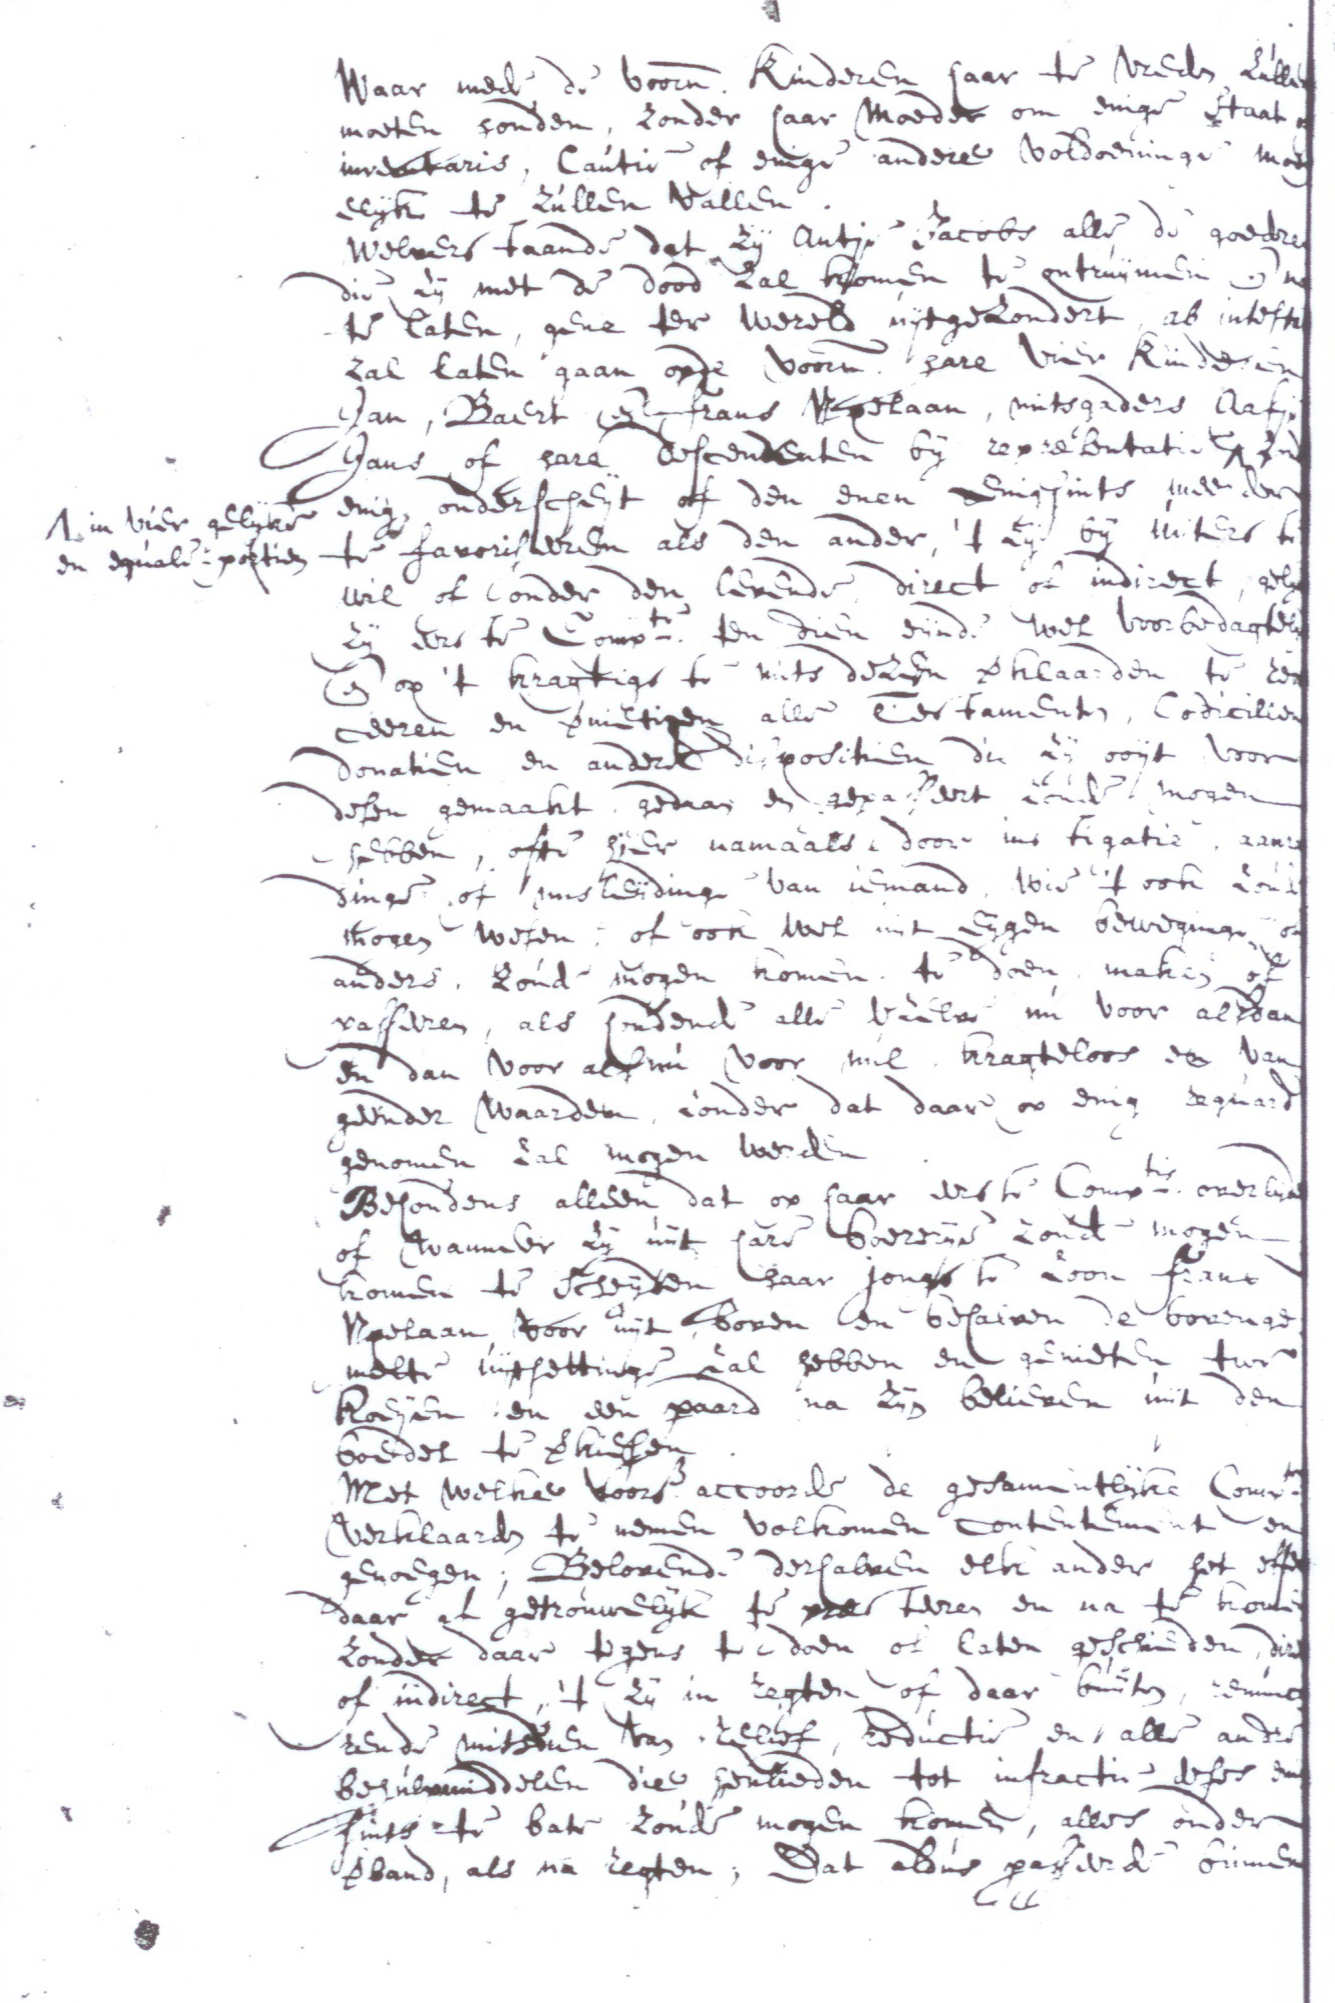 Waar mede de voorn. Kinderen haar te vreden zulle
moeten houden, zonder haar Moeder om enige Staat
inventaris, Cautie of enige andere voldoeninge moe
elijk te zullen vallen.
Welverstaande dat zij Antje Jacobs alle de goedere
die zij met de dood zal komen te ontruijmen en na
te laten, gene ter wereld uijtgezondert, ab intesta
zal laten gaan op de voorn. hare vier Kinderen
Jan, Baert en frans Apelaan, mitsgaders Aafje
Jans of hare descendenten bij representatie, zond
in vier gelijke
en equale portien
enig onderscheijt of den enen enigsints meerder
te favoriseeren als den ander, 't zij bij uiterste
wil of onder den levende, direct of indirect, gelyk
zij eerste Compte. ten dien eijnde wel voorbedagtelijk
en op 't kragtigste mits dezen verklaarden te rev
ceeren en vernietigen alle Testamenten, Codicilien
donatien en andere dispositien die zij ooijt voor
desen gemaakt, gedaan en gepasseert zoude mogen
hebben, ofte hier namaals door instigatie, aanra
dinge of misleijdinge van iemand, wie 't ook zoud
mogen wesen, of ook wel uit eijgen beweginge of
anders, zoude mogen komen te doen, maken of
passeren, als houdende alle deselve nu voor alsdan
en dan voor als nu voor nul, kragteloos en van
geender waarden, zonder dat daar op enig reguard
genomen zal mogen werden
Besondens alleen dat op haar eerste Comptes. overlijde
of wanneer zij uijt hare boererije zoude mogen
komen te scheijden haar jongste zoon frans
Apelaan voor uijt, boven en behalven de bovenge
melte uijtsettinge zal hebben en genieten twe
koeijen en een paard na zijn believen uijt den
boedel te verkiesen.
Met welke voors. accoorde de gesamentlijke Compten
verklaarden te nemen volkomen contentement en
genoegen; Belovende derhalven elk ander het effe
daar af getrouwelijk te presteeren en na te kome
zonder daar tegens te doen of laten geschieden, dire
of indirect, 't zij in regten of daar buijten, renunc
eende mitsdien van relief, reductie en alle ander
behulpmiddelen die henlieden tot infractie deses enig
sints te bate zoude mogen komen, alles onder
verband, als na regten; Dat aldus passeerde binnen